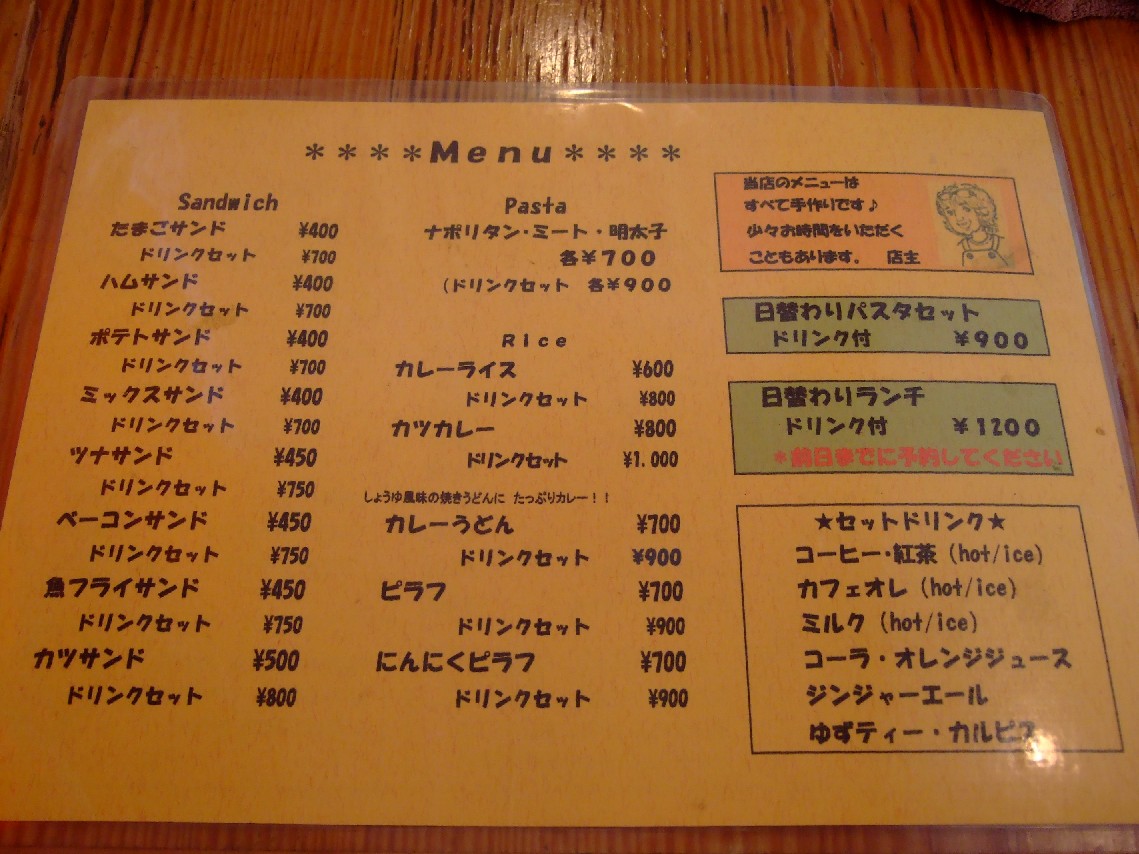 ****Menu****
Sandwich
たまごサンド ¥400
ドリンクセット ¥700
ハムサンド ¥400
ドリンクセット ¥700
ポテトサンド ¥400
ドリンクセット ¥700
ミックスサンド ¥400
ドリンクセット ¥700
ツナサンド ¥450
ドリンクセット ¥750
ベーコンサンド ¥450
ドリンクセット ¥750
魚フライサンド ¥450
ドリンクセット ¥750
カツサンド ¥500
ドリンクセット ¥800
Pasta
ナポリタン・ミート・明太子
各¥700
(ドリンクセット 各¥900
Rice
カレーライス ¥600
ドリンクセット ¥800
カツカレー ¥800
ドリンクセット ¥1.000
しょうゆ風味の焼きうどんに たっぷりカレー!!
カレーうどん ¥700
ドリンクセット ¥900
ピラフ ¥700
ドリンクセット ¥900
にんにくピラフ ¥700
ドリンクセット ¥900
当店のメニューは
すべて手作りです♪
少々お時間をいただく
こともあります。 店主
日替わりパスタセット
ドリンク付 ¥900
日替わりランチ
ドリンク付 ¥1200
*前日までに予約してください
★セットドリンク★
コーヒー・紅茶 (hot/ice)
カフェオレ (hot/ice)
ミルク (hot/ice)
コーラ・オレンジジュース
ジンジャーエール
ゆずティー・カルピス